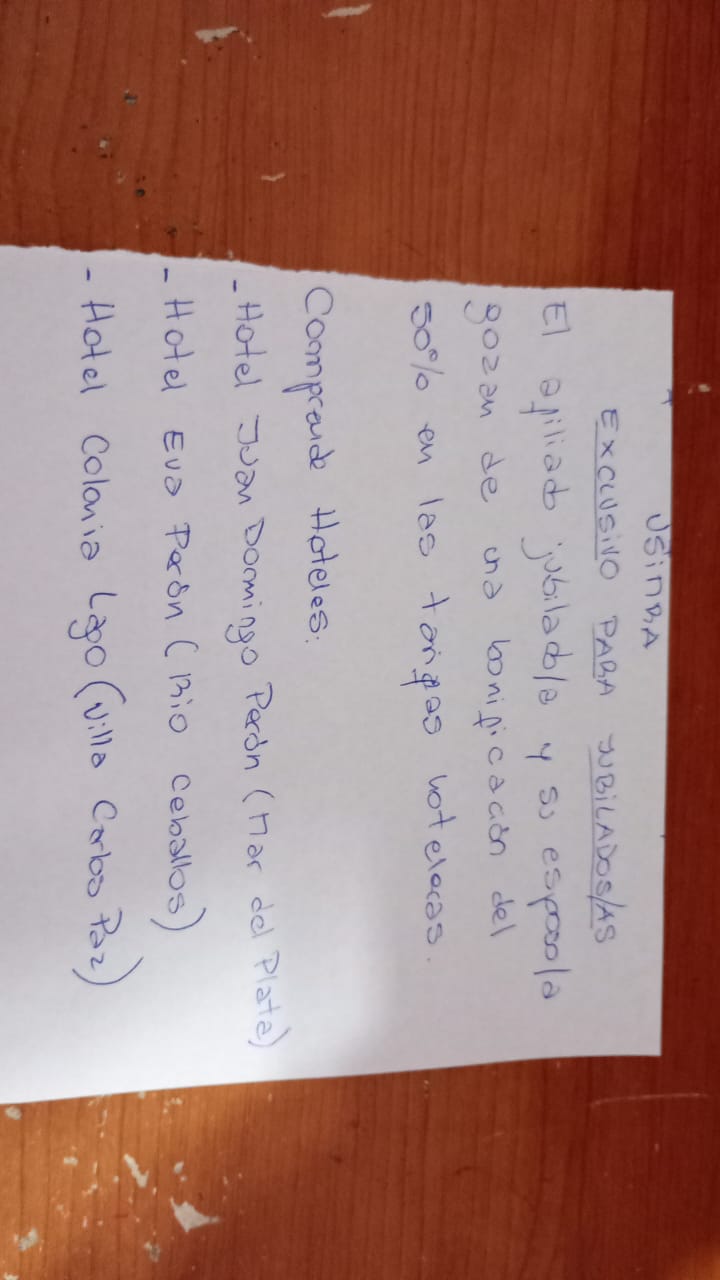 USIMRA
EXCLUSIVO PARA JUBILADOS/AS
El afiliado jubilado/a y su esposo/a
gozan de una bonificación del
50% en las tarifas hoteleras.
Comprende Hoteles:
- Hotel Juan Domingo Perón (Mar del Plata)
- Hotel Eva Perón (Rio Ceballos)
- Hotel Colonia Lago (Villa Carlos Paz)